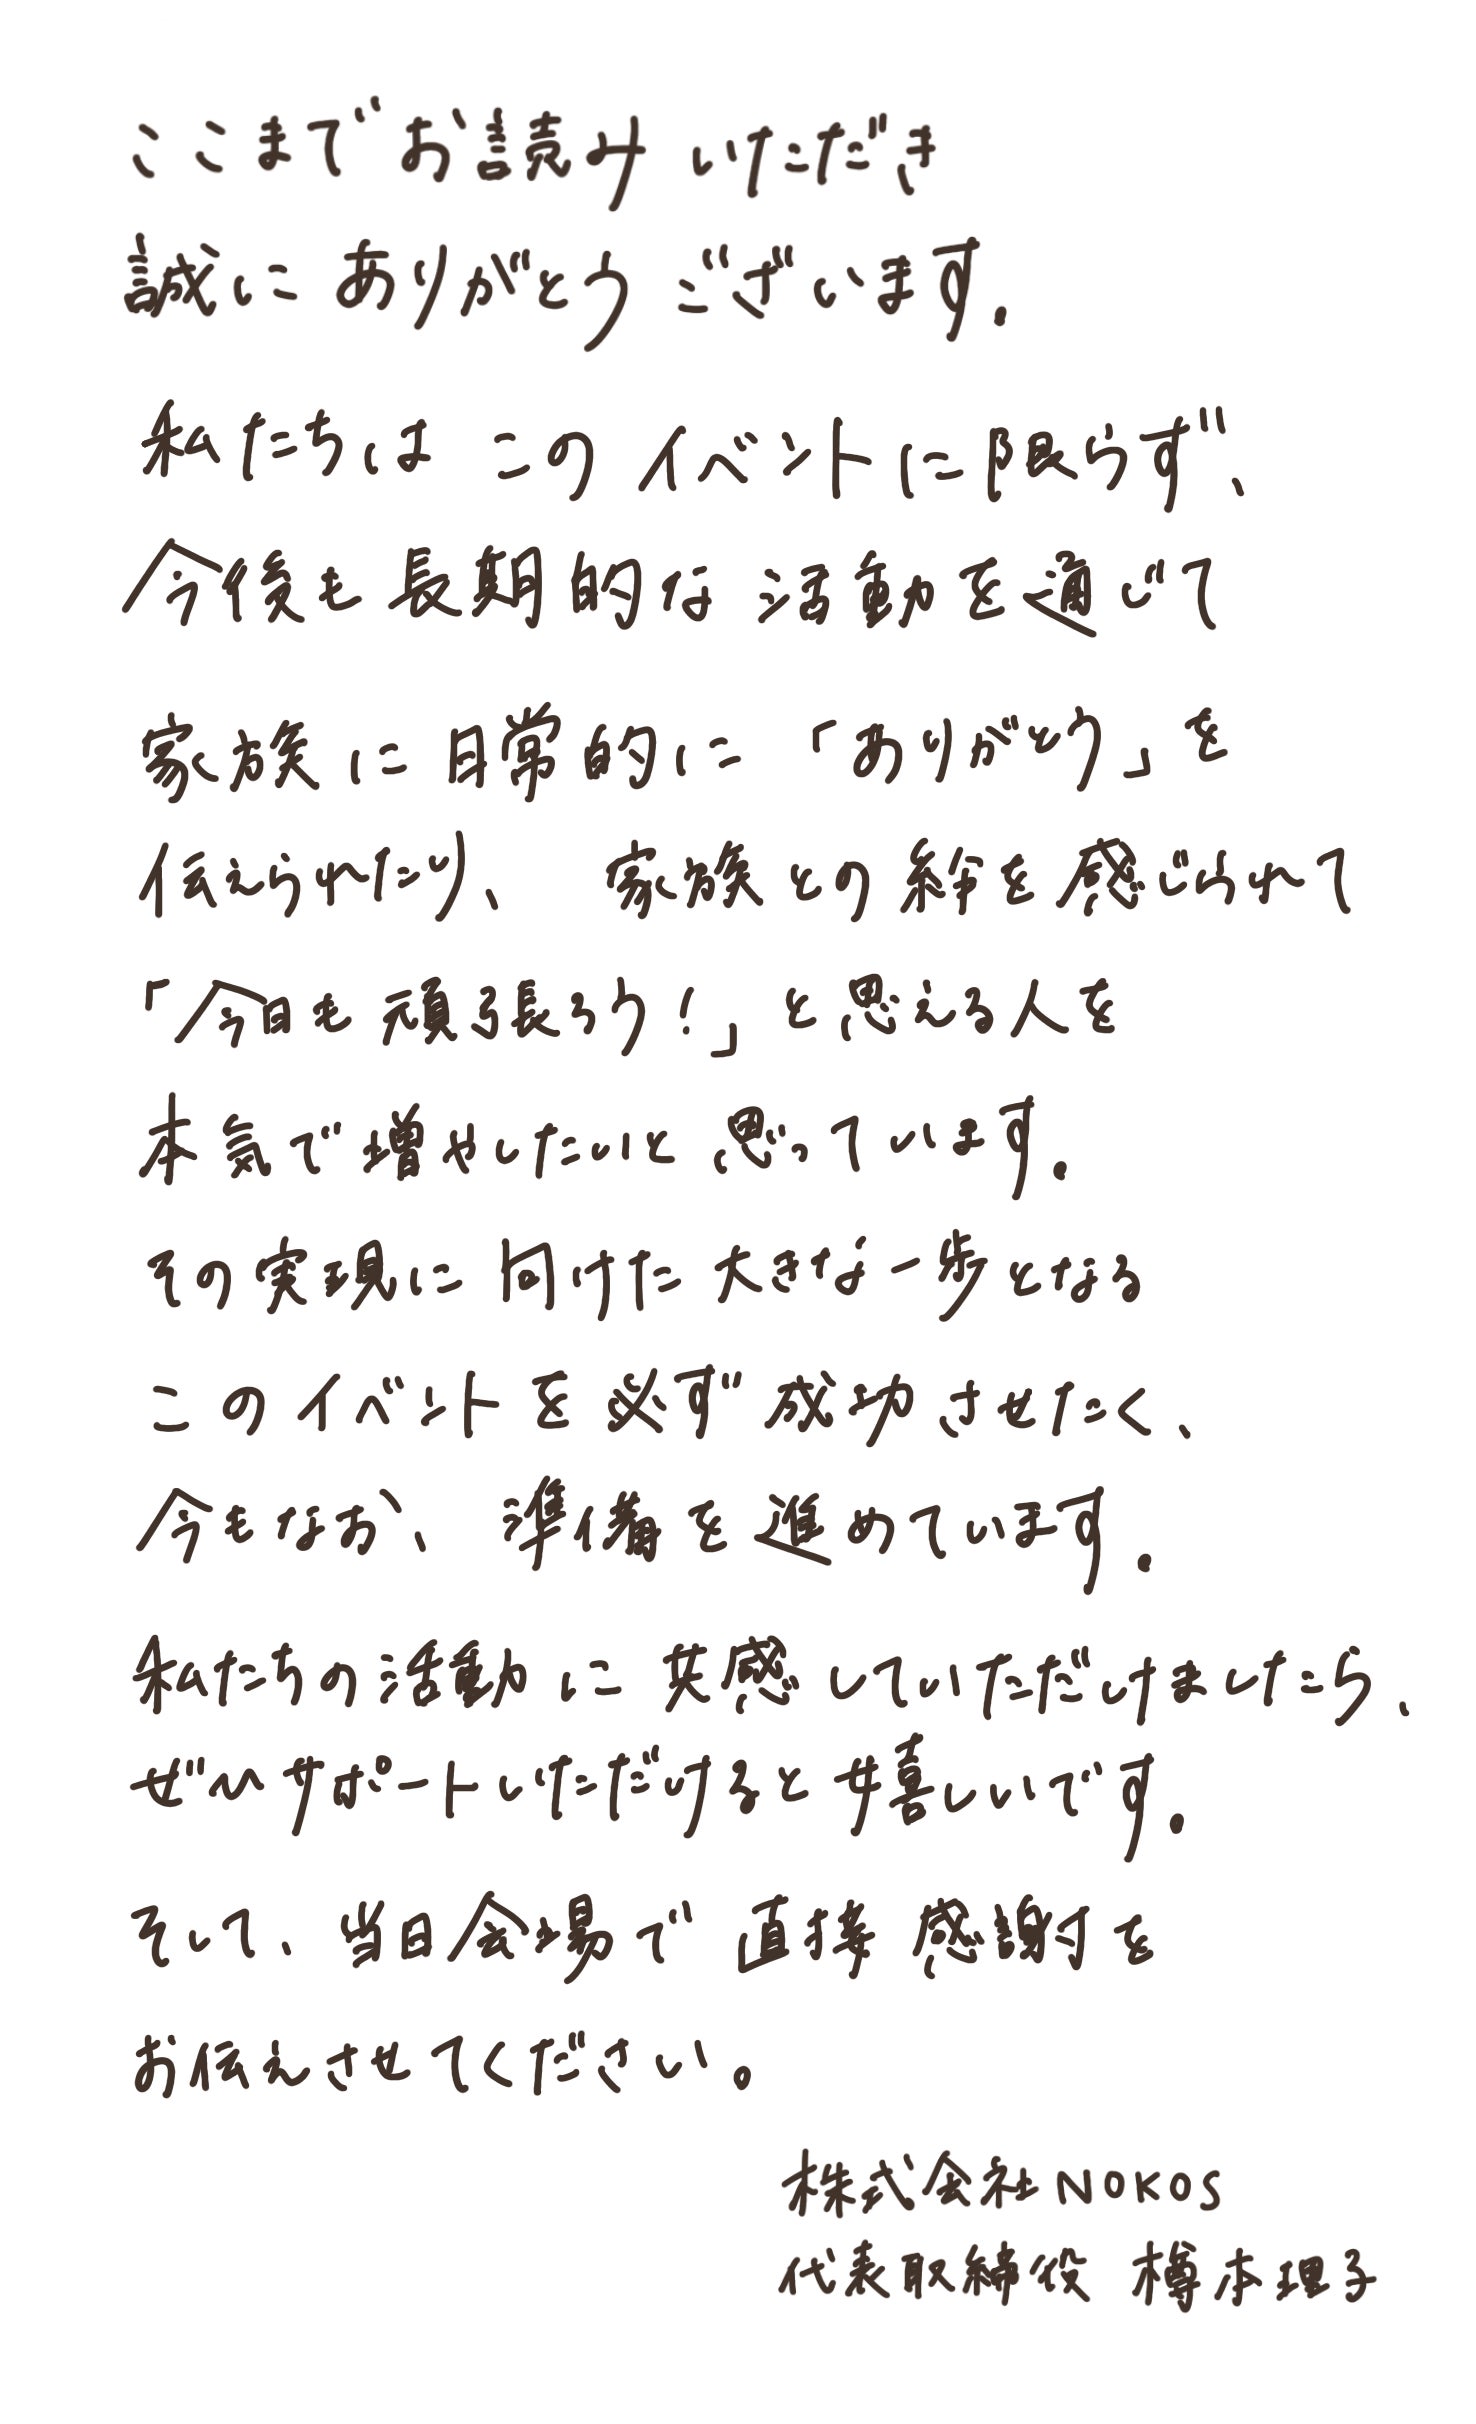 ここまでお読みいただき
誠にありがとうございます.
私たちはこのイベントに限らず、
今後も長期的な活動を通じて
家族に日常的に「ありがとう」を
伝えられたり、家族との絆を感じられて
「今日も頑張ろう!」と思える人を
本気で増やしたいと思っています.
その実現に向けた大きな一歩となる
このイベントを必ず成功させたく、
今もなお、準備を進めています.
私たちの活動に共感していただけましたら、
ぜひサポートいただけると嬉しいです.
そして、当日会場で直接感謝を
お伝えさせてください。
株式会社NOKOS
代表取締役 樽本理子